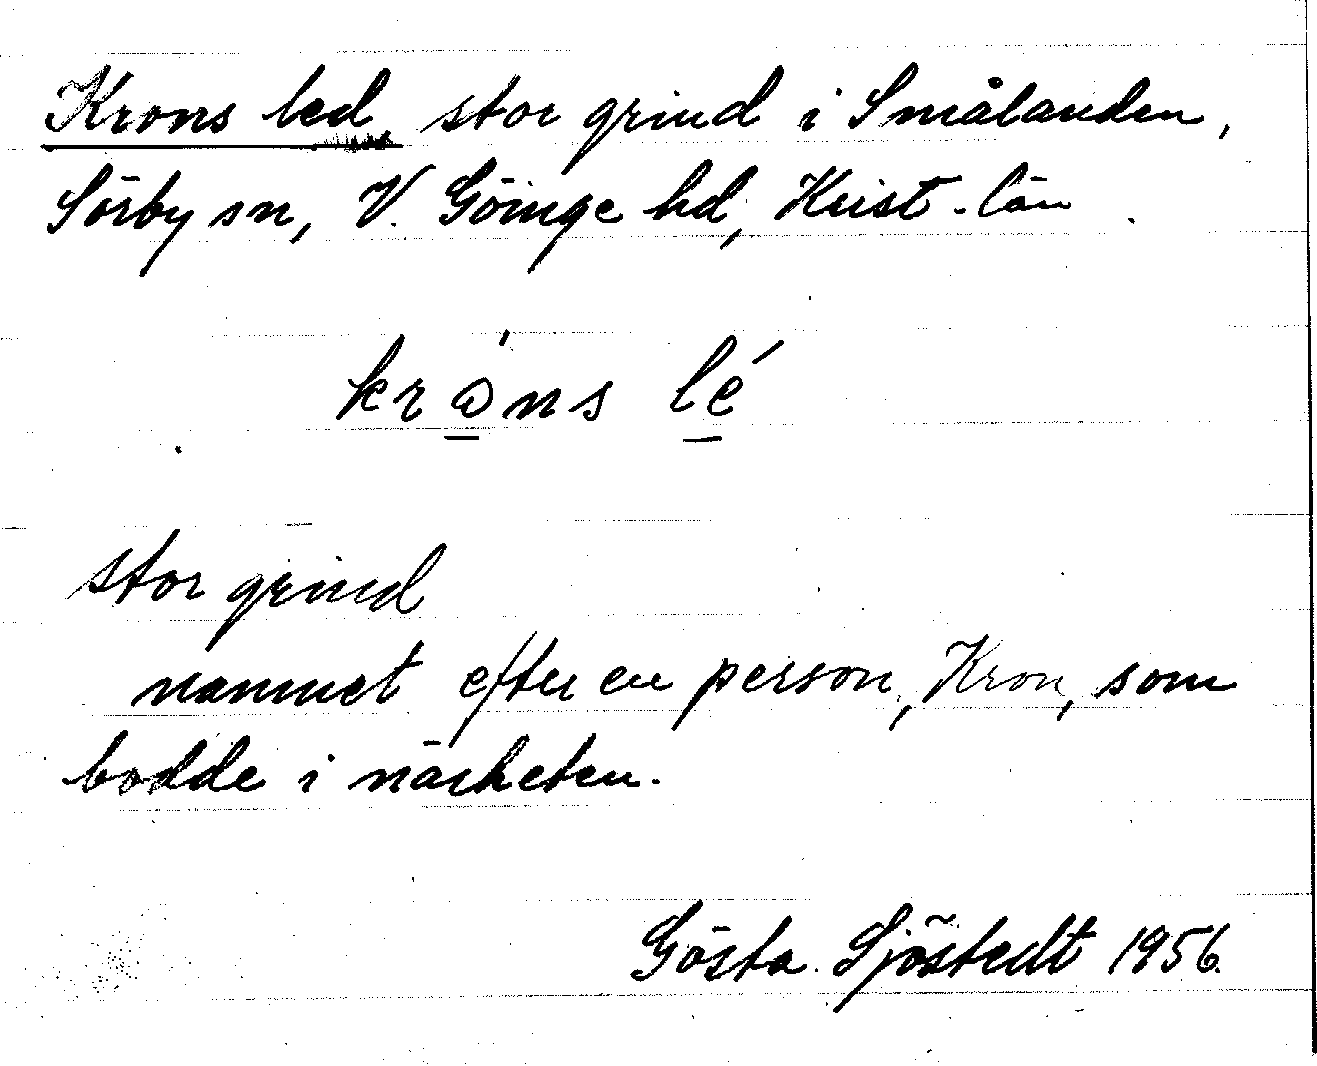 Krons led, stor grind i Smålanden,
Sörby sn, V. Göinge hd, Krist. län.
krώ̲ns lé̲
stor grind
namnet efter en person, Kron, som
bodde i närheten.
Gösta Sjöstedt 1956.